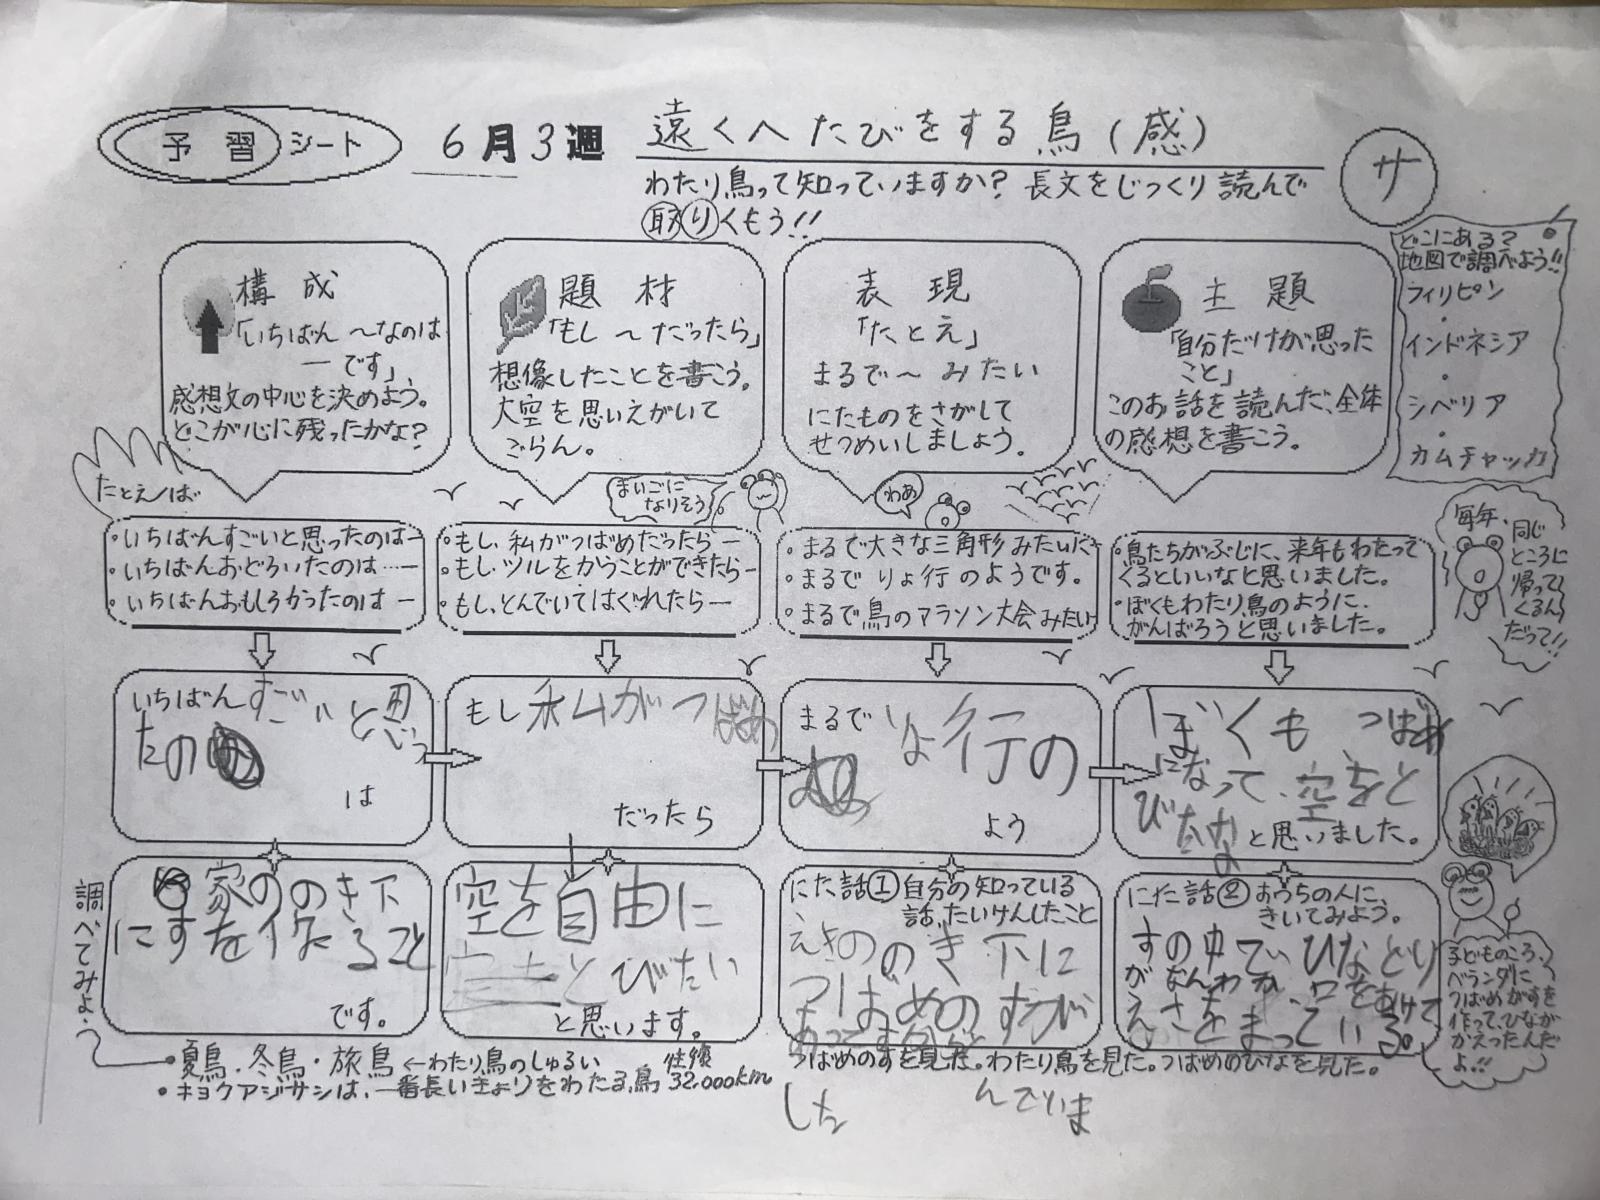 予習シート 6月3週 遠くへたびをする鳥(感)
わたり鳥って知っていますか？ 長文をじっくり読んで
取りくもう!!
サ
構成
「いちばん～なのは
―です」
感想文の中心を決めよう。
どこが心に残ったかな？
題材
「もし～だったら」
想像したことを書こう。
大空を思いえがいて
ごらん。
表現
「たとえ」
まるで～みたい
にたものをさがして
せつめいしましょう。
主題
「自分だけが思った
こと」
このお話を読んだ、全体
の感想を書こう。
どこにある？
地図で調べよう!!
フィリピン
・
インドネシア
・
シベリア
・
カムチャッカ
たとえば
・いちばんすごいと思ったのは―
・いちばんおどろいたのは…―
・いちばんおもしろかったのは―
まいごに
なりそう。
・もし、私がつばめだったら―
・もし、ツルをかうことができたら―
・もし、とんでいてはぐれたら―
わあ
・まるで大きな三角形みたいだ
・まるでりょ行のようです。
・まるで鳥のマラソン大会みたい
・鳥たちがぶじに、来年もわたって
くるといいなと思いました。
・ぼくもわたり鳥のように、
がんばろうと思いました。
毎年、
同じ
ところに
帰って
くるん
だって!!
いちばんすごいと思っ
たの
は
もし私がつばめ
だったら
まるでりょ行の
よう
ぼくもつばめ
になって、空をと
びたいな
と思いました。
家ののき下
にすを作ること
です。
空を自由に
とびたい
と思います。
にた話① 自分の知っている
話、たいけんしたこと
えきののき下に
つばめのすが
あって
した
んでいま
にた話② おうちの人に、
きいてみよう。
すの中でひなどり
がなんわか、口をあけて
えさをまっている。
子どものころ、
ベランダに
つばめがすを
作って、ひなが
かえったんだ
よ!!
調べてみよう
・夏鳥・冬鳥・旅鳥 ←わたり鳥のしゅるい
・キョクアジサシは、一番長いきょりをわたる鳥 往復 32,000km
つばめのすを見た。わたり鳥を見た。つばめのひなを見た。